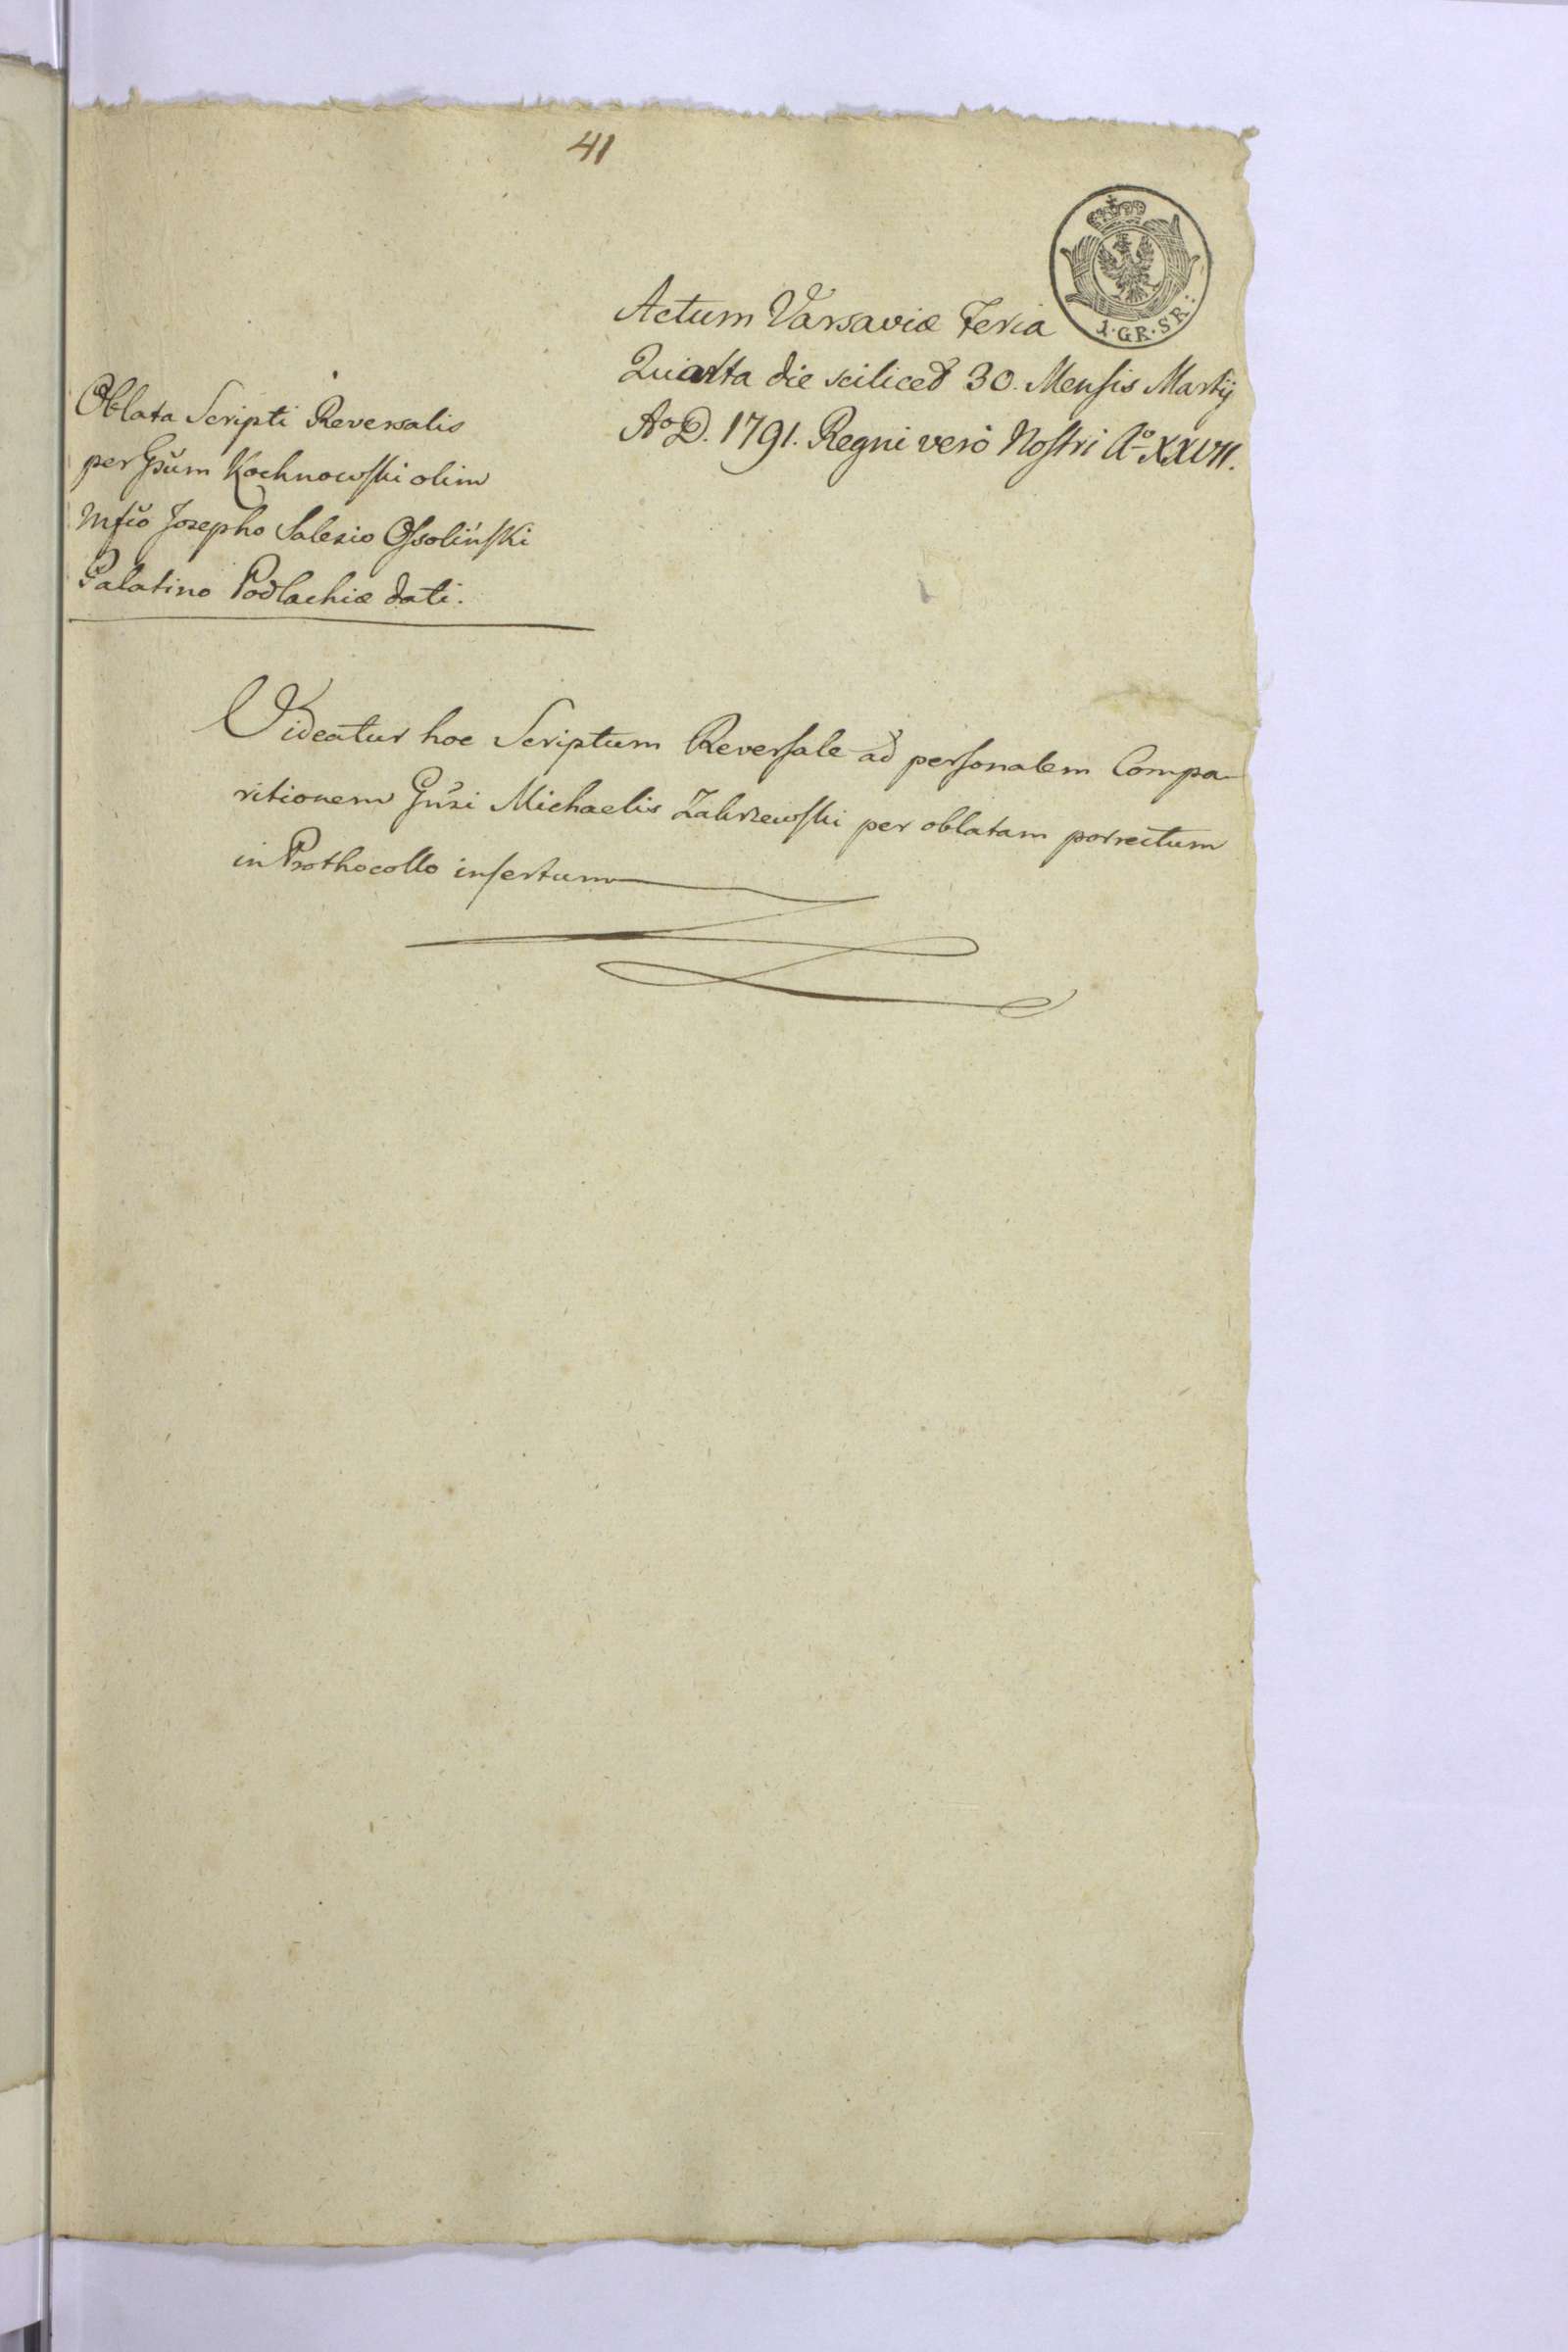 41
1·GR·SR:
Actum Varsaviæ Feria
Quarta die scilicet 30. Mensis Martij
Aº D. 1791. Regni verò Nostri Aº XXVII.
Oblata Scripti Reversalis
per Kochnowski olim
Josepho Salezio Ossoliński
Palatino Podlachiæ dati.
Videatur hoc Scriptum Reversale ad personalem Compa-
ritionem Michaelis Zakrzewski per oblatam porrectum
in Prothocollo insertum